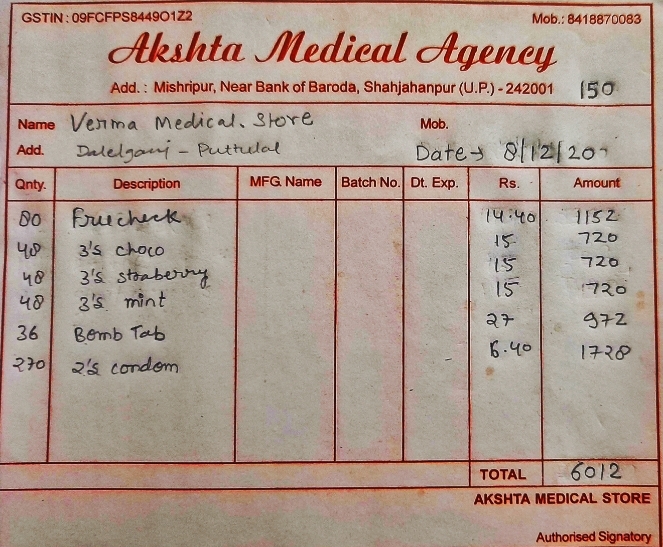 GSTIN : 09FCFPS8449O1Z2 Mob.: 8418870083
Akshta Medical Agency
Add. : Mishripur, Near Bank of Baroda, Shahjahanpur (U.P.) - 242001 150
Name Verma Medical. Store Mob.
Add. Dalelganj - Puttulal Date → 8/12/20
Qnty. Description MFG. Name Batch No. Dt. Exp. Rs. Amount
80 Truecheck 14.40 1152
48 3's choco 15 720
48 3's straberry 15 720
48 3's mint 15 720
36 Bomb Tab 27 972
270 2's condom 6.40 1728
TOTAL 6012
AKSHTA MEDICAL STORE
Authorised Signatory